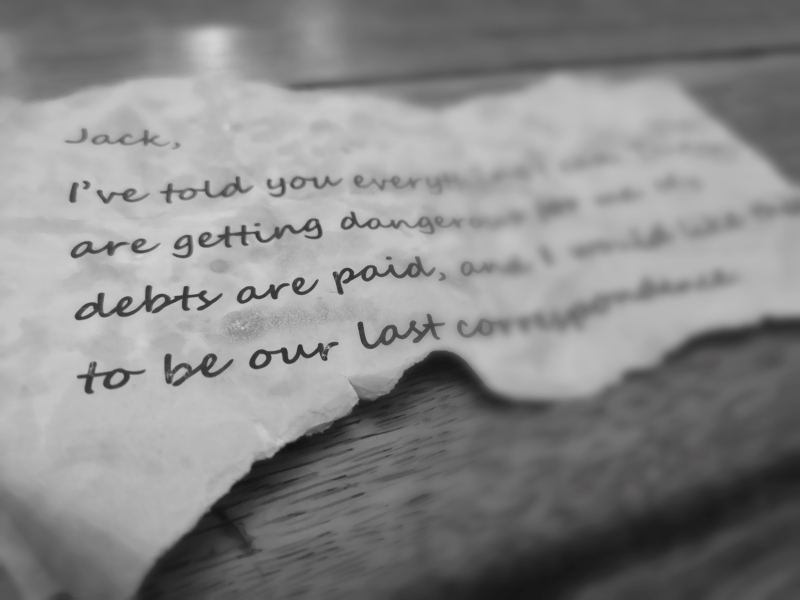 Jack,
I've told you everything I
are getting dangerous for me
debts are paid, and I would like this
to be our last correspondence.